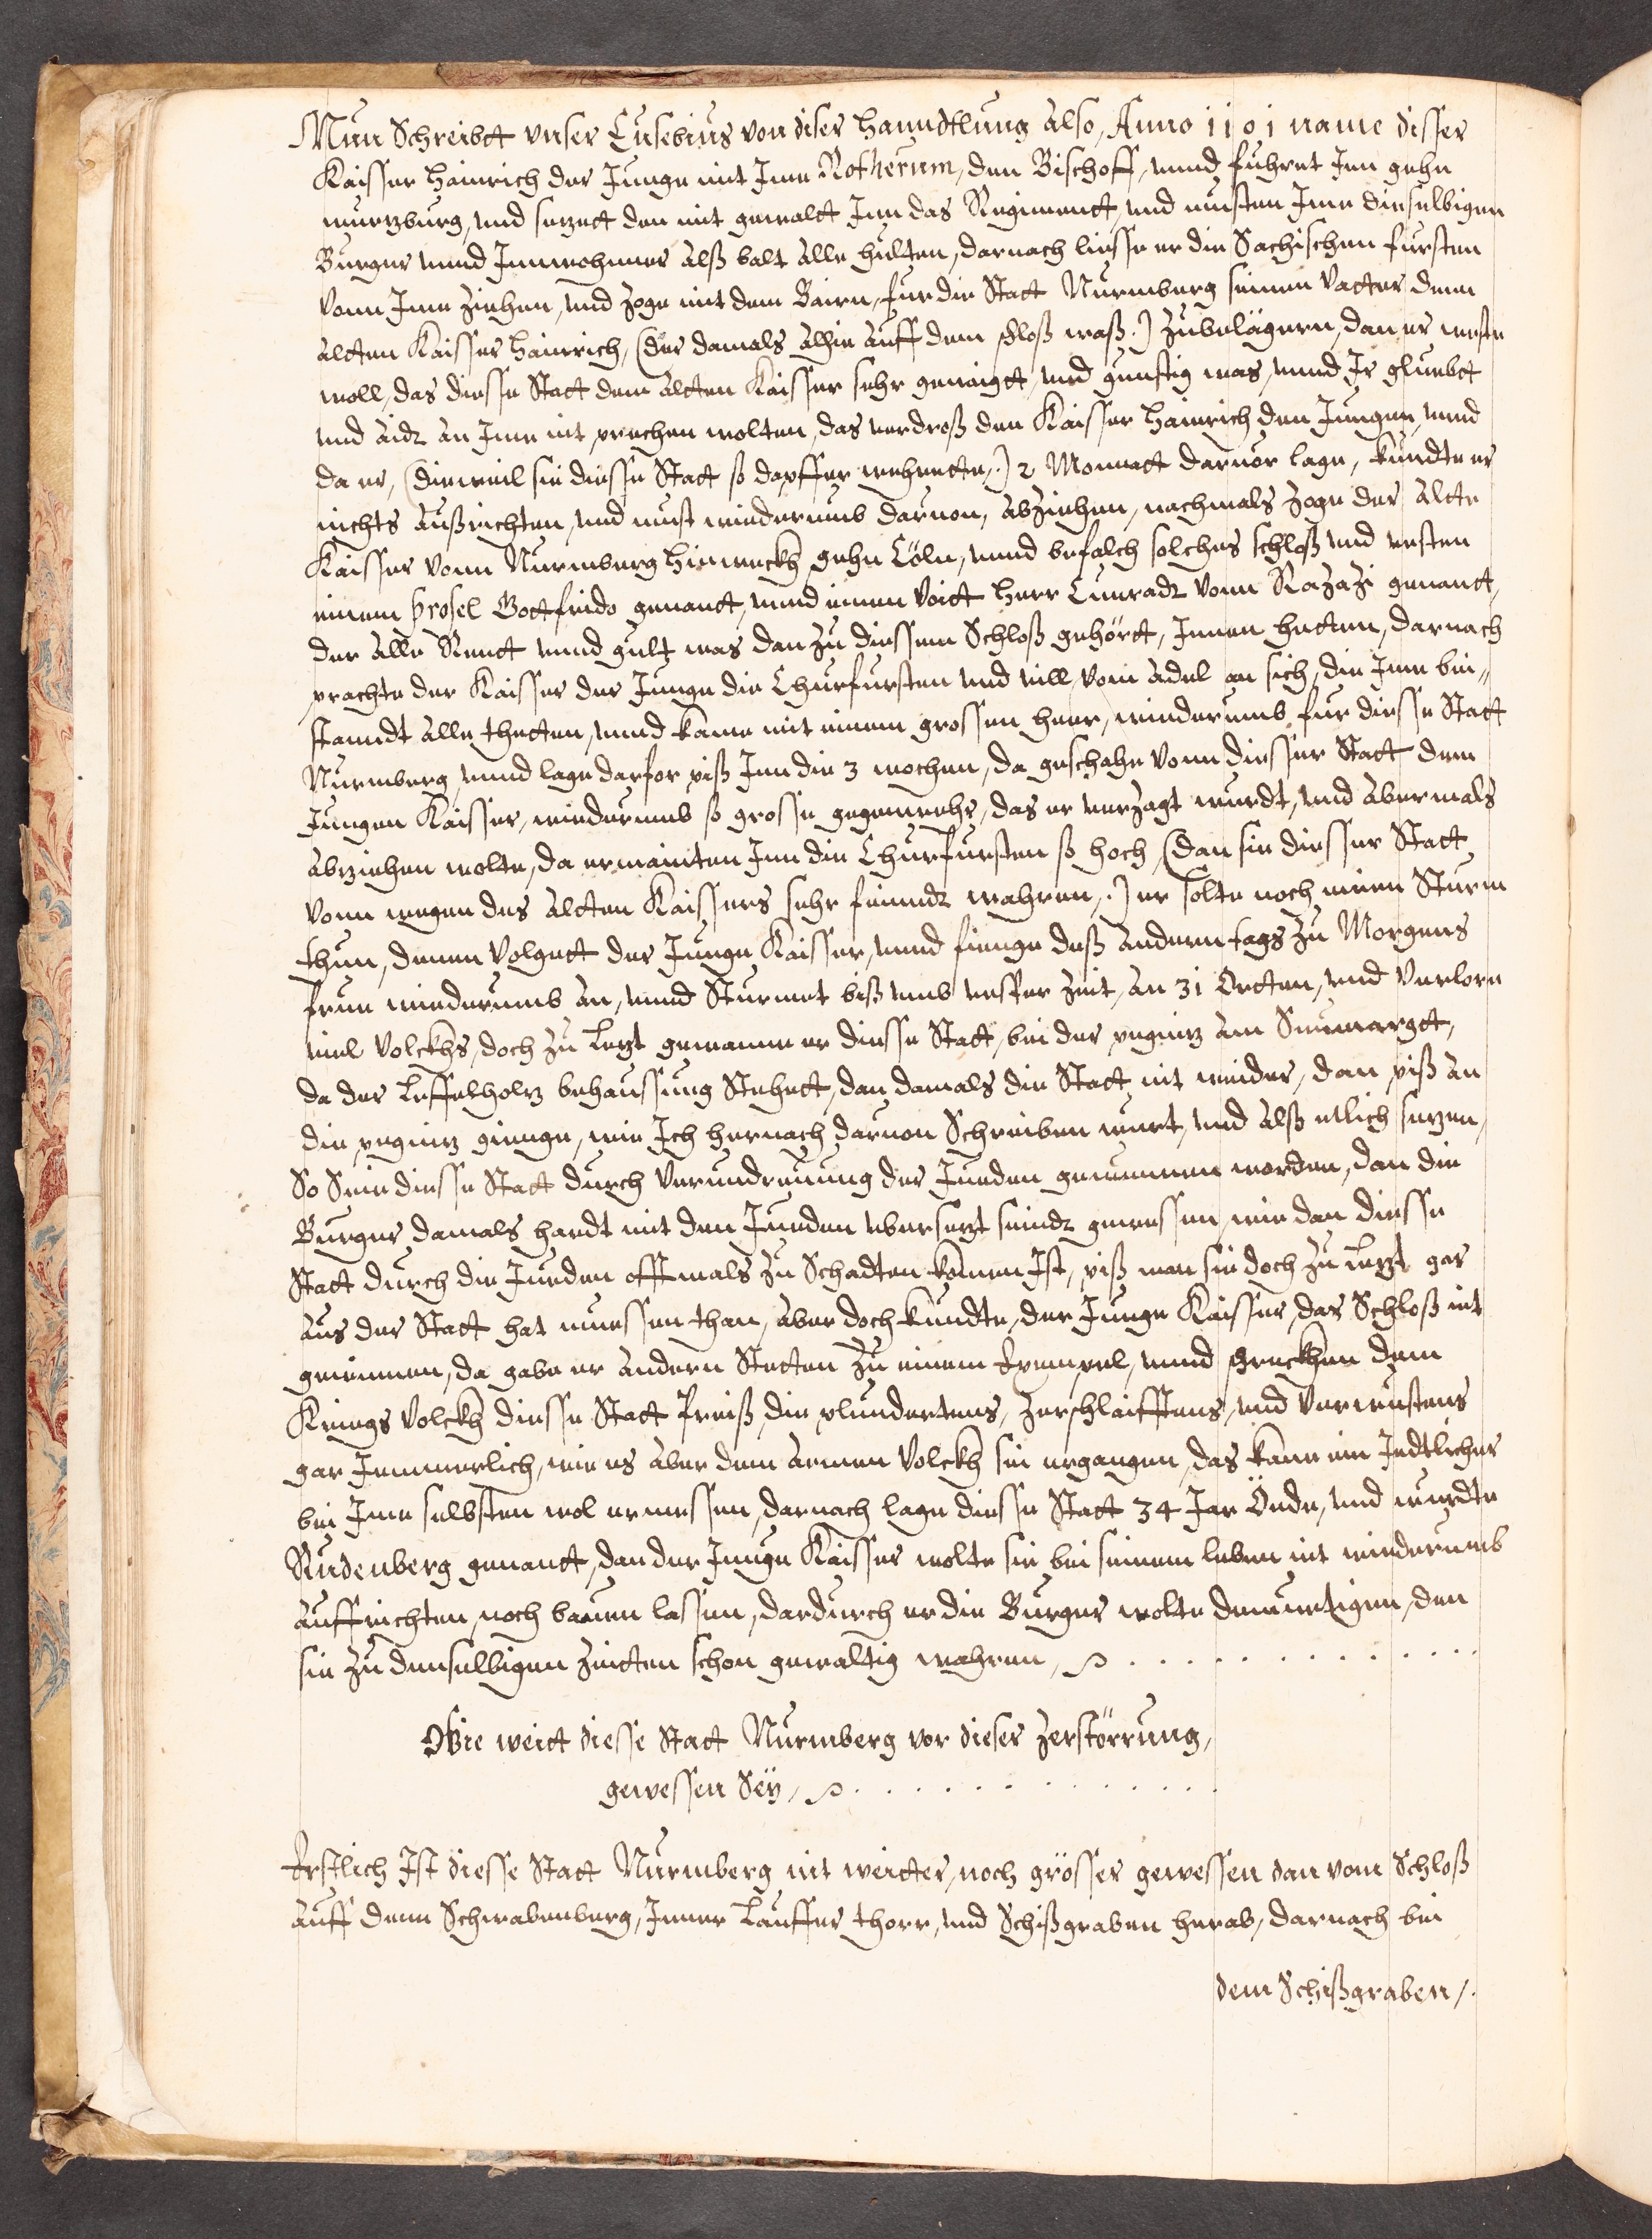 Nun Schreibtt vnser Eusebius von diser hanndtlung Also, Anno 1101 name disser
Kaisser Hainrich der Junge mit Jme Rotherum, den Bischoff, vnnd fuhret Jnn gehn
wurtzburg, vnd setzett den mit gewaltt Jnn das Regimentt, vnd musten Jme dieselbigen
Burger vnnd Jnnwohnner Alß balt Alle hulten, darnach liesse er die Sachischen fursten
vonn Jme ziehen, vnd zoge mit dem Bairn, fur die Statt Nurmberg seinem vatter dem
Altten Kaisser Hainrich, (der damals Alhie Auff dem schloß waß.) zubelägern, dan er weste
woll, das diesse Statt dem Altten Kaisser sehr genaigtt, vnd gunstig was, vnnd Jr gluebtt
vnd Aidt An Jme nit prechen wolten, das verdroß den Kaisser Hainrich den Jungen, vnnd
da er, (dieweil sie diesse Statt so dapffer wehrette,.) 2 Monnatt daruor lage, kundte er
nichts Außrichten, vnd must wiederumb daruon, Abziehen, nachmals zoge der Altte
Kaisser vonn Nurmberg hinweckh gehn Cöln, vnnd befalch solches schloß vnd vesten
einem prosel Gottfrido genantt, vnnd einen Voitt Herr Cunradt vonn Razazi genantt,
der Alle Rentt vnnd gult was dan zu diessem Schloß gehörtt, Jnnen hetten, darnach
prachte der Kaisser der Junge die Churfursten vnd vill vom Adel an sich, die Jme bei-
stanndt Alle thetten, vnnd kame mit einem grossen heer, wiederumb fur diesse Statt
Nurmberg, vnnd lage darfor piß Jnn die 3 wochen, da geschahe vonn diesser Statt dem
Jungen Kaisser, wiederumb so grosse gegenwehr, das er verzagt wurdt, vnd Abermals
Abziehen wolte, da ermainten Jnn die Churfursten so hoch, (dan sie diesser Statt
vonn wegen des Altten Kaissers sehr feinndt wahren,.) er solte noch einen Sturm
thun, denen volgett der Junge Kaisser, vnnd fienge deß Andern tags zu Morgens
frue wiederumb An, vnnd Sturmet biß vmb vesper zeit, An 31 Ortten, vnd Verlore
viel Volckhs, doch zu letzt gewanne er diesse Statt, bei der pegnitz Am Seumargtt,
da der Leffelholtz behaussung Stehett, dan damals die Statt nit weider, dan piß An
die pegnitz gienge, wie Jch hernach daruon Schreiben wurt, vnd Alß etlich setzen,
So Seie diesse Statt durch Veruntreuung der Jueden gewunnen worden, dan die
Burger damals hardt mit den Jueden vbersetzt seindt gewessen, wie dan diesse
Statt durch die Jueden offtmals zu Schadten komen Jst, piß man sie doch zu Letzt gar
Aus der Statt hat muessen than, Aber doch kundte, der Junge Kaisser, das Schloß nit
gewinnen, da gabe er Andern Stetten zu einem Exempel, vnnd schreckhen dem
Kriegs Volckh diesse Statt Preiß, die plundertens, zerschlaifftens, vnd Verwustens
gar Jemmerlich, wie es Aber dem Armen Volckh sei ergangen, das kann ein Jedtlicher
bei Jme selbsten wol ermessen, darnach lage diesse Statt 34 Jar Öede, vnd wurdte
Rudenberg genantt, dan der Junge Kaisser wolte sie bei seinem leben nit wiederumb
Auffrichten, noch bauen lassen, dardurch er die Burger wolte demuetigen, den
sie zu denselbigen zeitten schon gewaltig wahren,
Wie weitt diesse Statt Nurmberg vor dieser Zerstörrung,
gewessen Seÿ,
Erstlich Jst diesse Statt Nurmberg nit weitter, noch grösser gewessen dan vom Schloß
Auff denn Schwabenberg, Jnner Lauffer thorr, vnd Schißgraben herab, darnach bei
dem Schißgraben /.